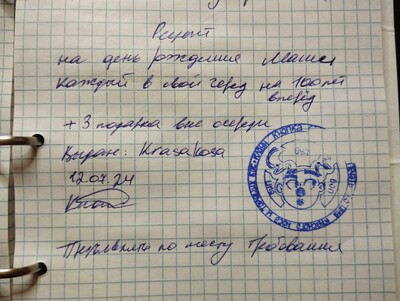 Рецепт
на день рождения Маши
каждый в свой черед на 100 лет
вперёд
+ 3 подарка вне очереди
Выдан: Krasakosa
12.07.24
Предъявлять по месту требования